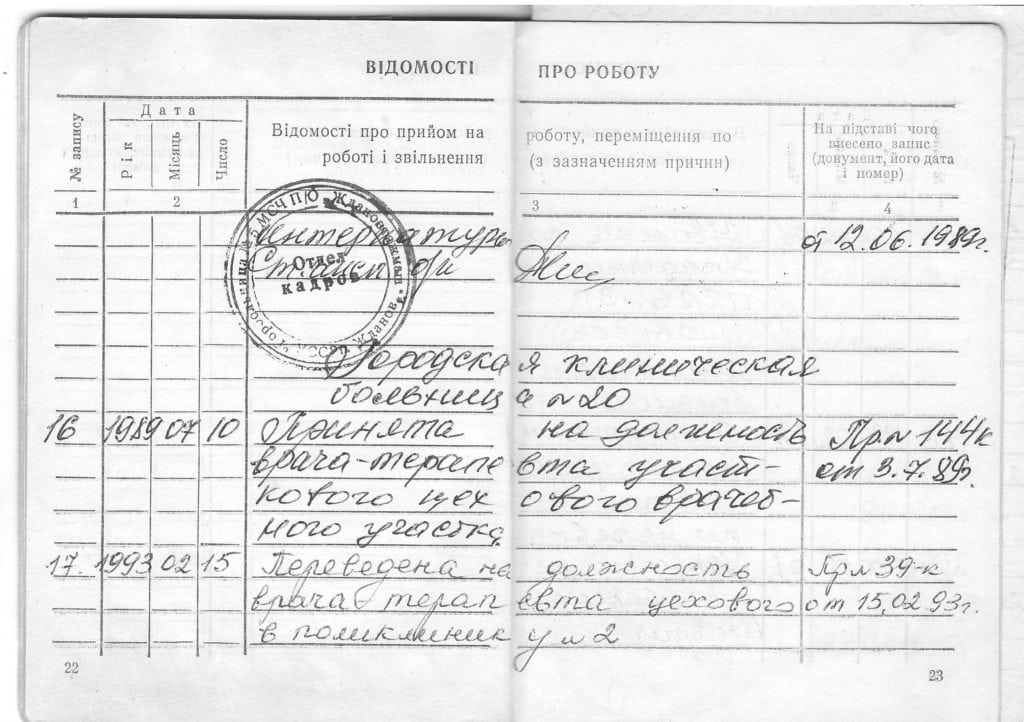 ВІДОМОСТІ ПРО РОБОТУ
№ запису
Дата
Рік
Місяць
Число
Відомості про прийом на роботу, переміщення по
роботі і звільнення (з зазначенням причин)
На підставі чого
внесено запис
(документ, його дата
і номер)
1 2 3 4
интернатуры от 12.06.1989г.
Отдел
кадров
Городская клиническая
больница №20
16 1989 07 10 Принята на должность Пр№ 144к
врача-терапевта участ- от 3.7.89г.
кового цехового врачеб-
ного участка.
17. 1993 02 15 Переведена на должность Пр№ 39-к
врача терапевта цехового от 15.02.93г.
в поликлинику №2
22 23